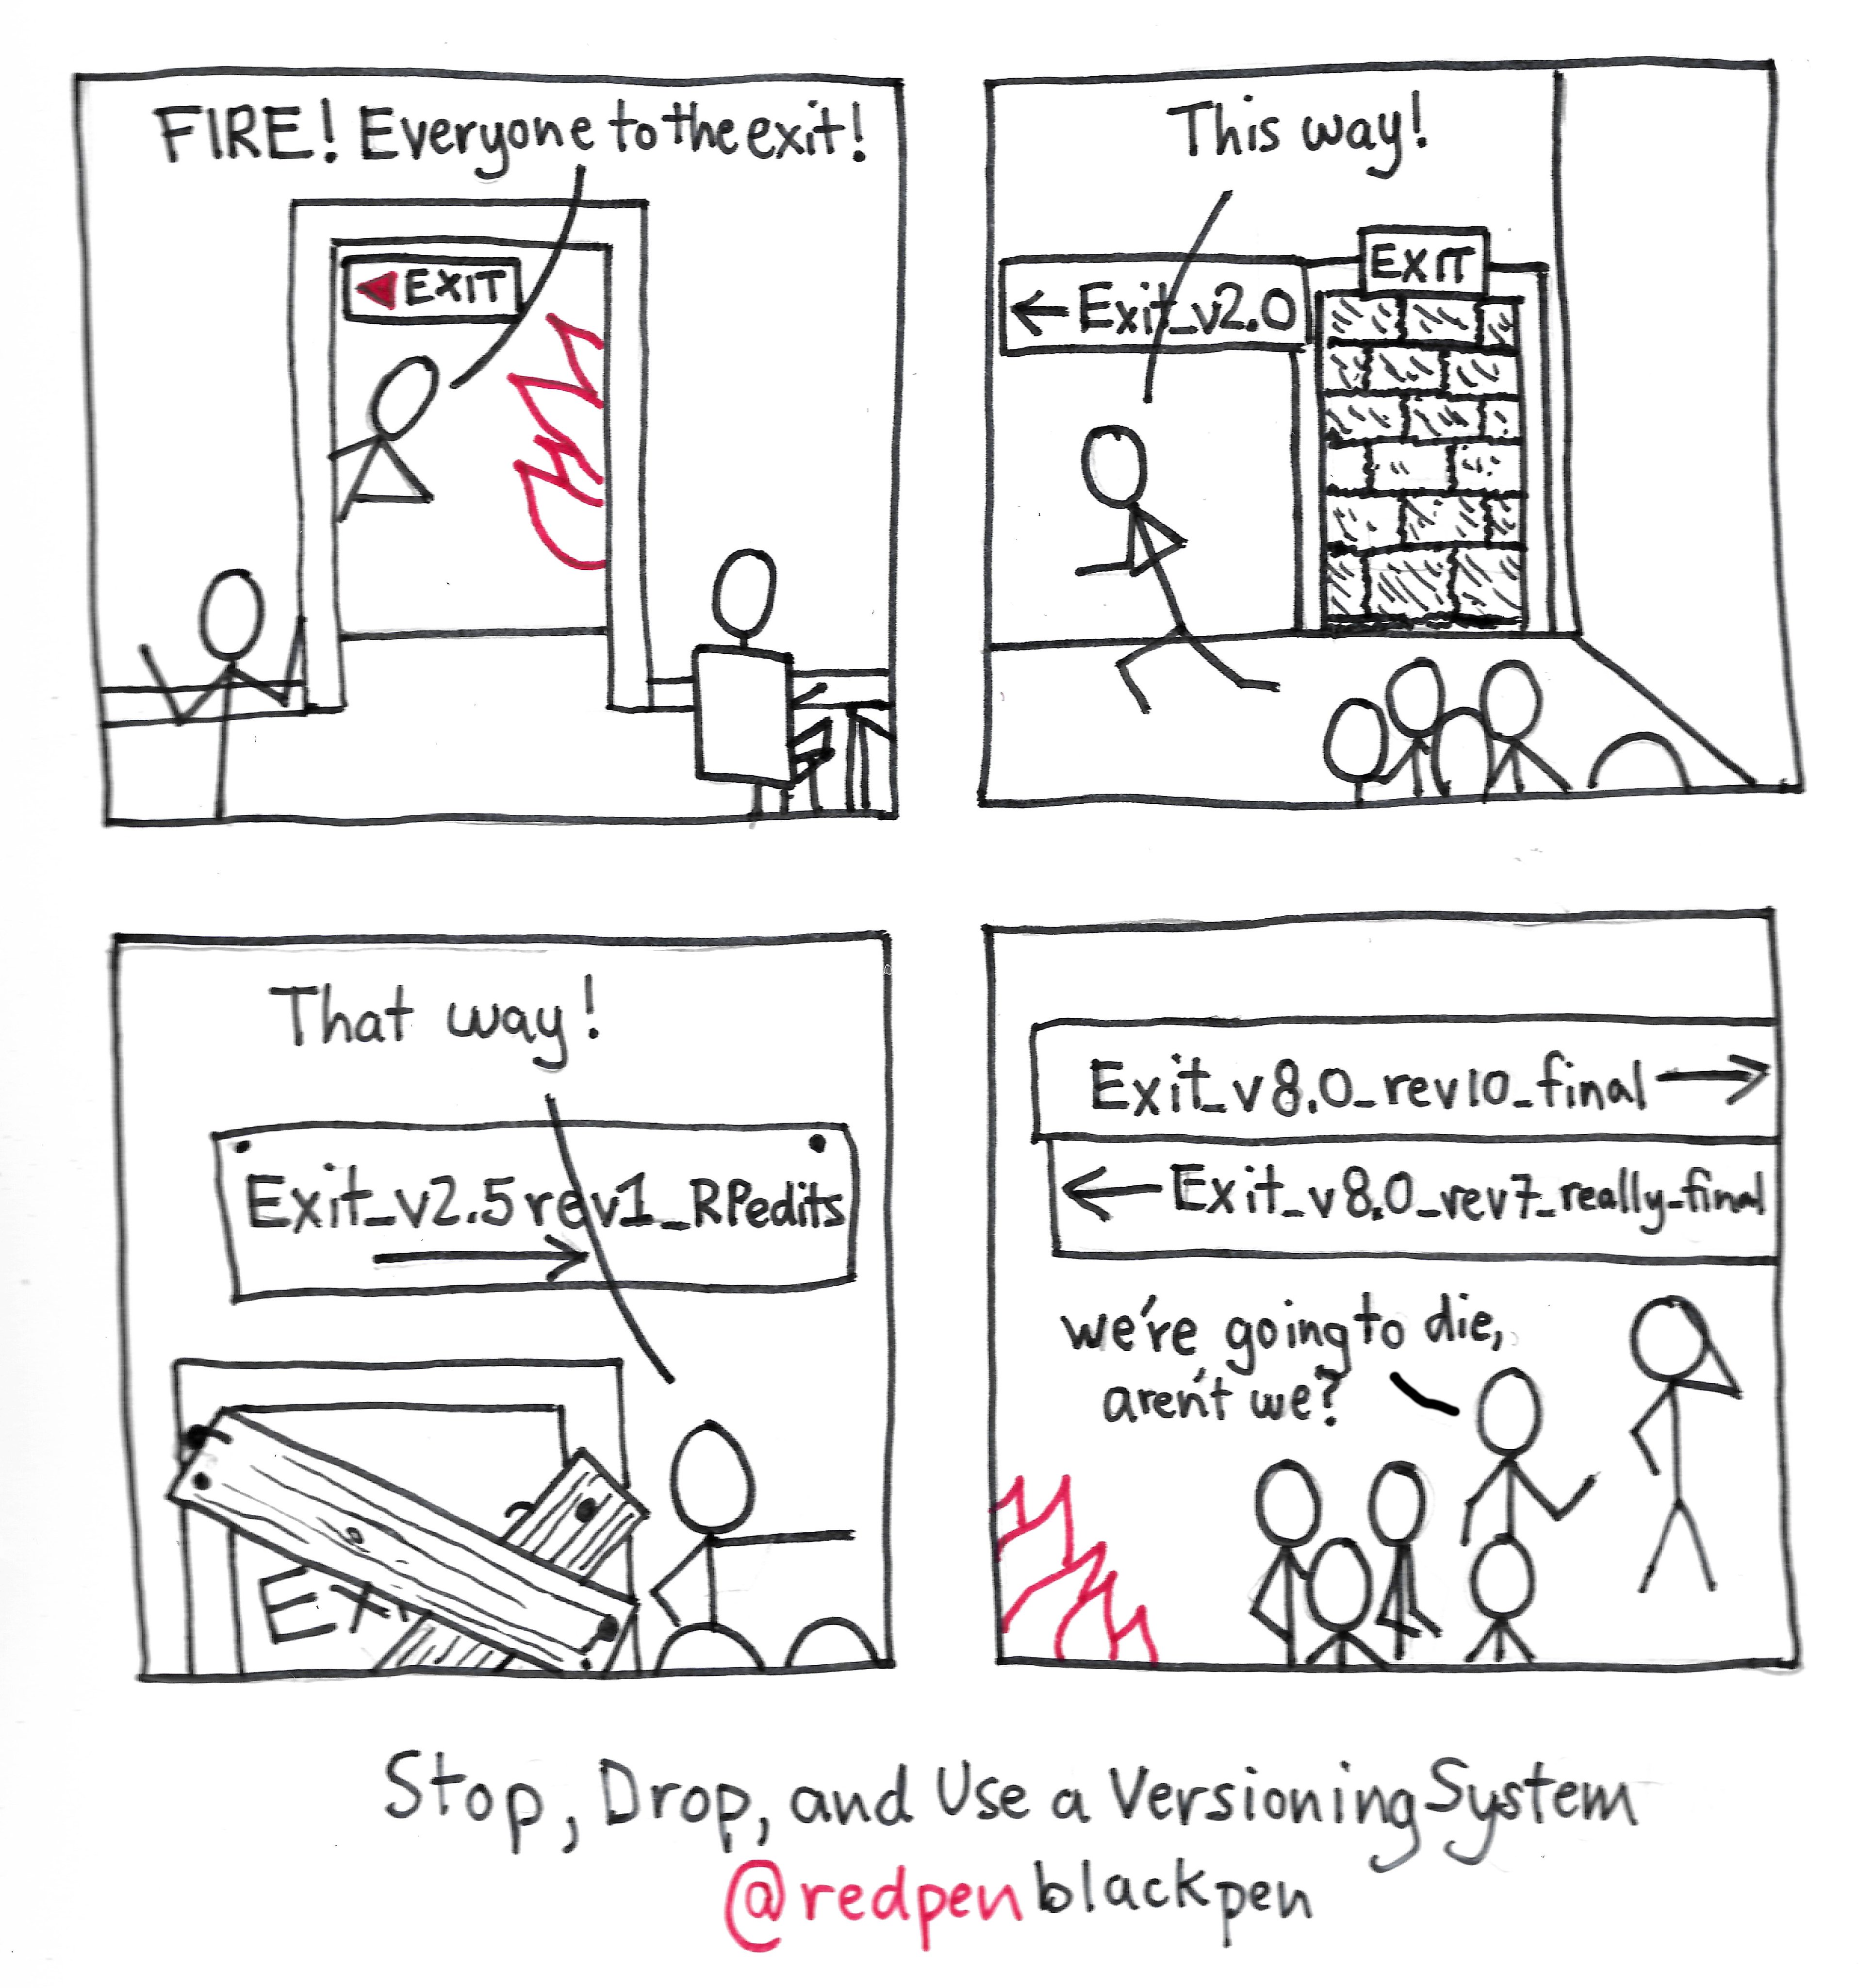 FIRE! Everyone to the exit!
EXIT
This way!
EXIT
← Exit_v2.0
That way!
Exit_v2.5rev1_RPedits
→
EX
Exit_v8.0_rev10_final →
← Exit_v8.0_rev7_really_final
we're going to die,
aren't we?
Stop, Drop, and Use a Versioning System
@redpenblackpen